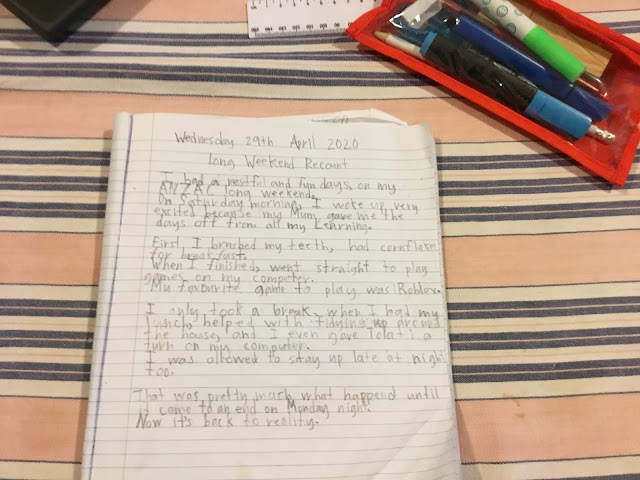 Wednesday 29th April 2020
Long Weekend Recount
I had a restful and fun days, on my
ANZAC long weekend.
On Saturday morning, I woke up very
excited because my Mum, gave me the
days off from all my Learning.
First, I brushed my teeth, had cornflakes
for breakfast.
When I finished, went straight to play
games on my computer.
My favourite game to play was Roblox.
I only took a break, when I had my
lunch, helped with tidying up around
the house, and I even gave Iolati a
turn on my computer.
I was allowed to stay up late at night
too.
That was pretty much what happend until
it came to an end on Monday night.
Now it's back to reality.